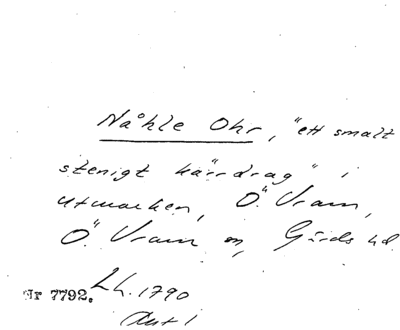 Nåhle Ohr, "ett smalt
stenigt kärrdrag" i
utmarken, Ö. Vram,
Ö. Vram sn, Gärds hd.
Nr 7792. LL. 1790
Akt 1